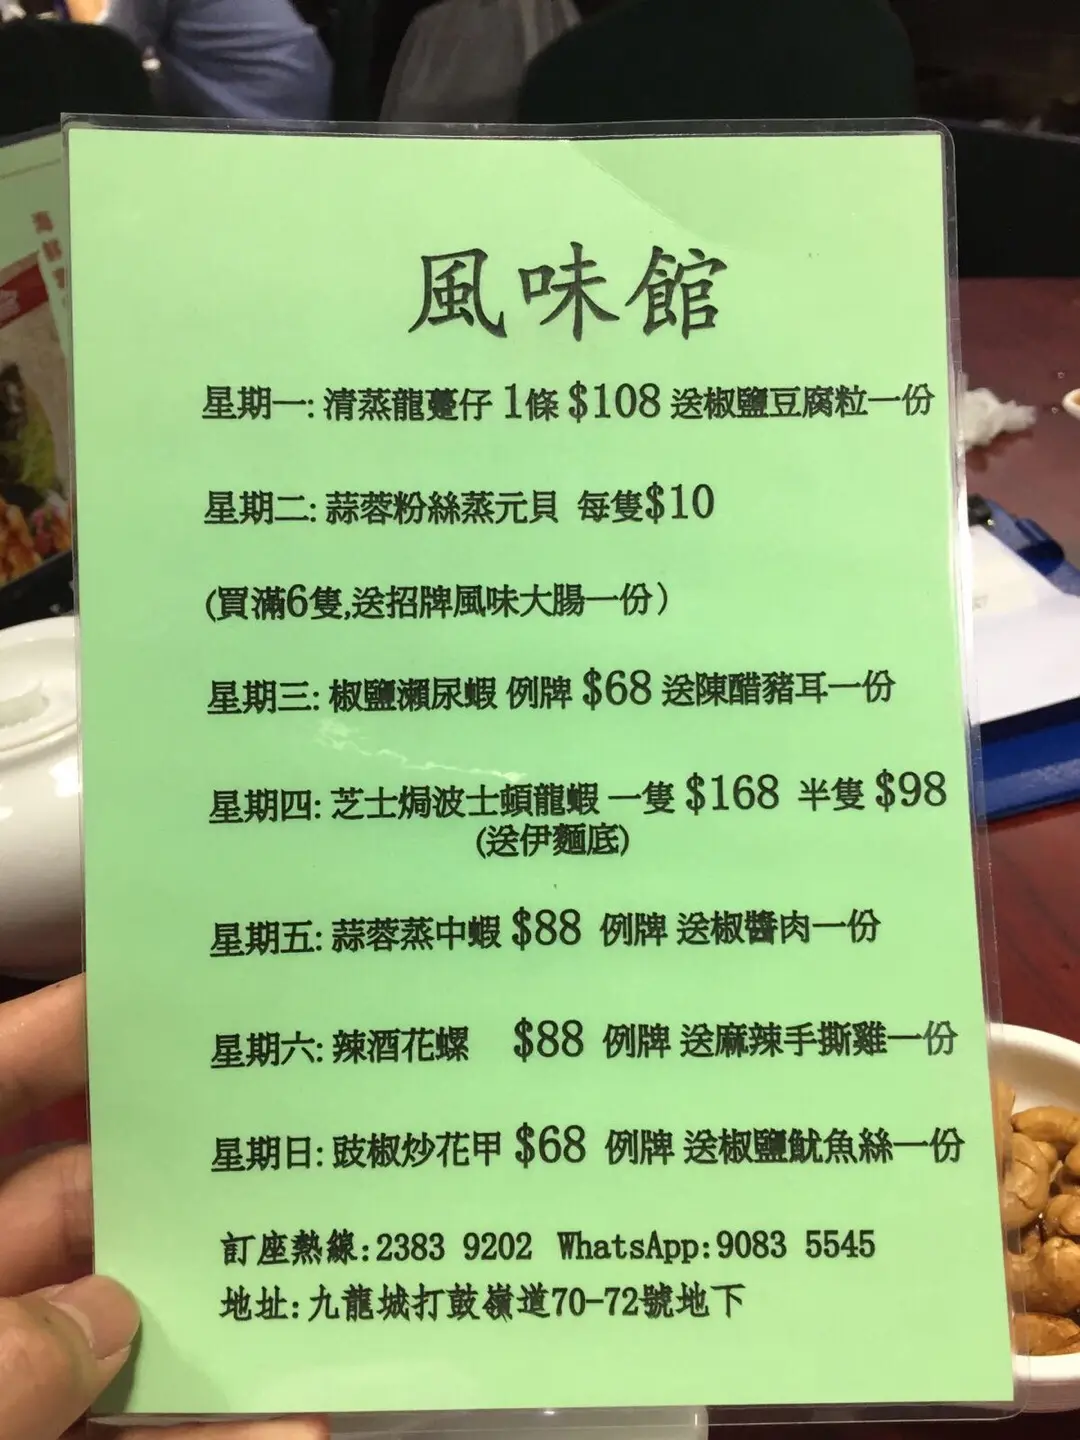 風味館
星期一: 清蒸龍躉仔 1條 $108 送椒鹽豆腐粒一份
星期二: 蒜蓉粉絲蒸元貝 每隻$10
(買滿6隻,送招牌風味大腸一份）
星期三: 椒鹽瀨尿蝦 例牌 $68 送陳醋豬耳一份
星期四: 芝士焗波士頓龍蝦 一隻 $168 半隻 $98
(送伊麵底)
星期五: 蒜蓉蒸中蝦 $88 例牌 送椒醬肉一份
星期六: 辣酒花螺 $88 例牌 送麻辣手撕雞一份
星期日: 豉椒炒花甲 $68 例牌 送椒鹽魷魚絲一份
訂座熱線:2383 9202 WhatsApp:9083 5545
地址:九龍城打鼓嶺道70-72號地下